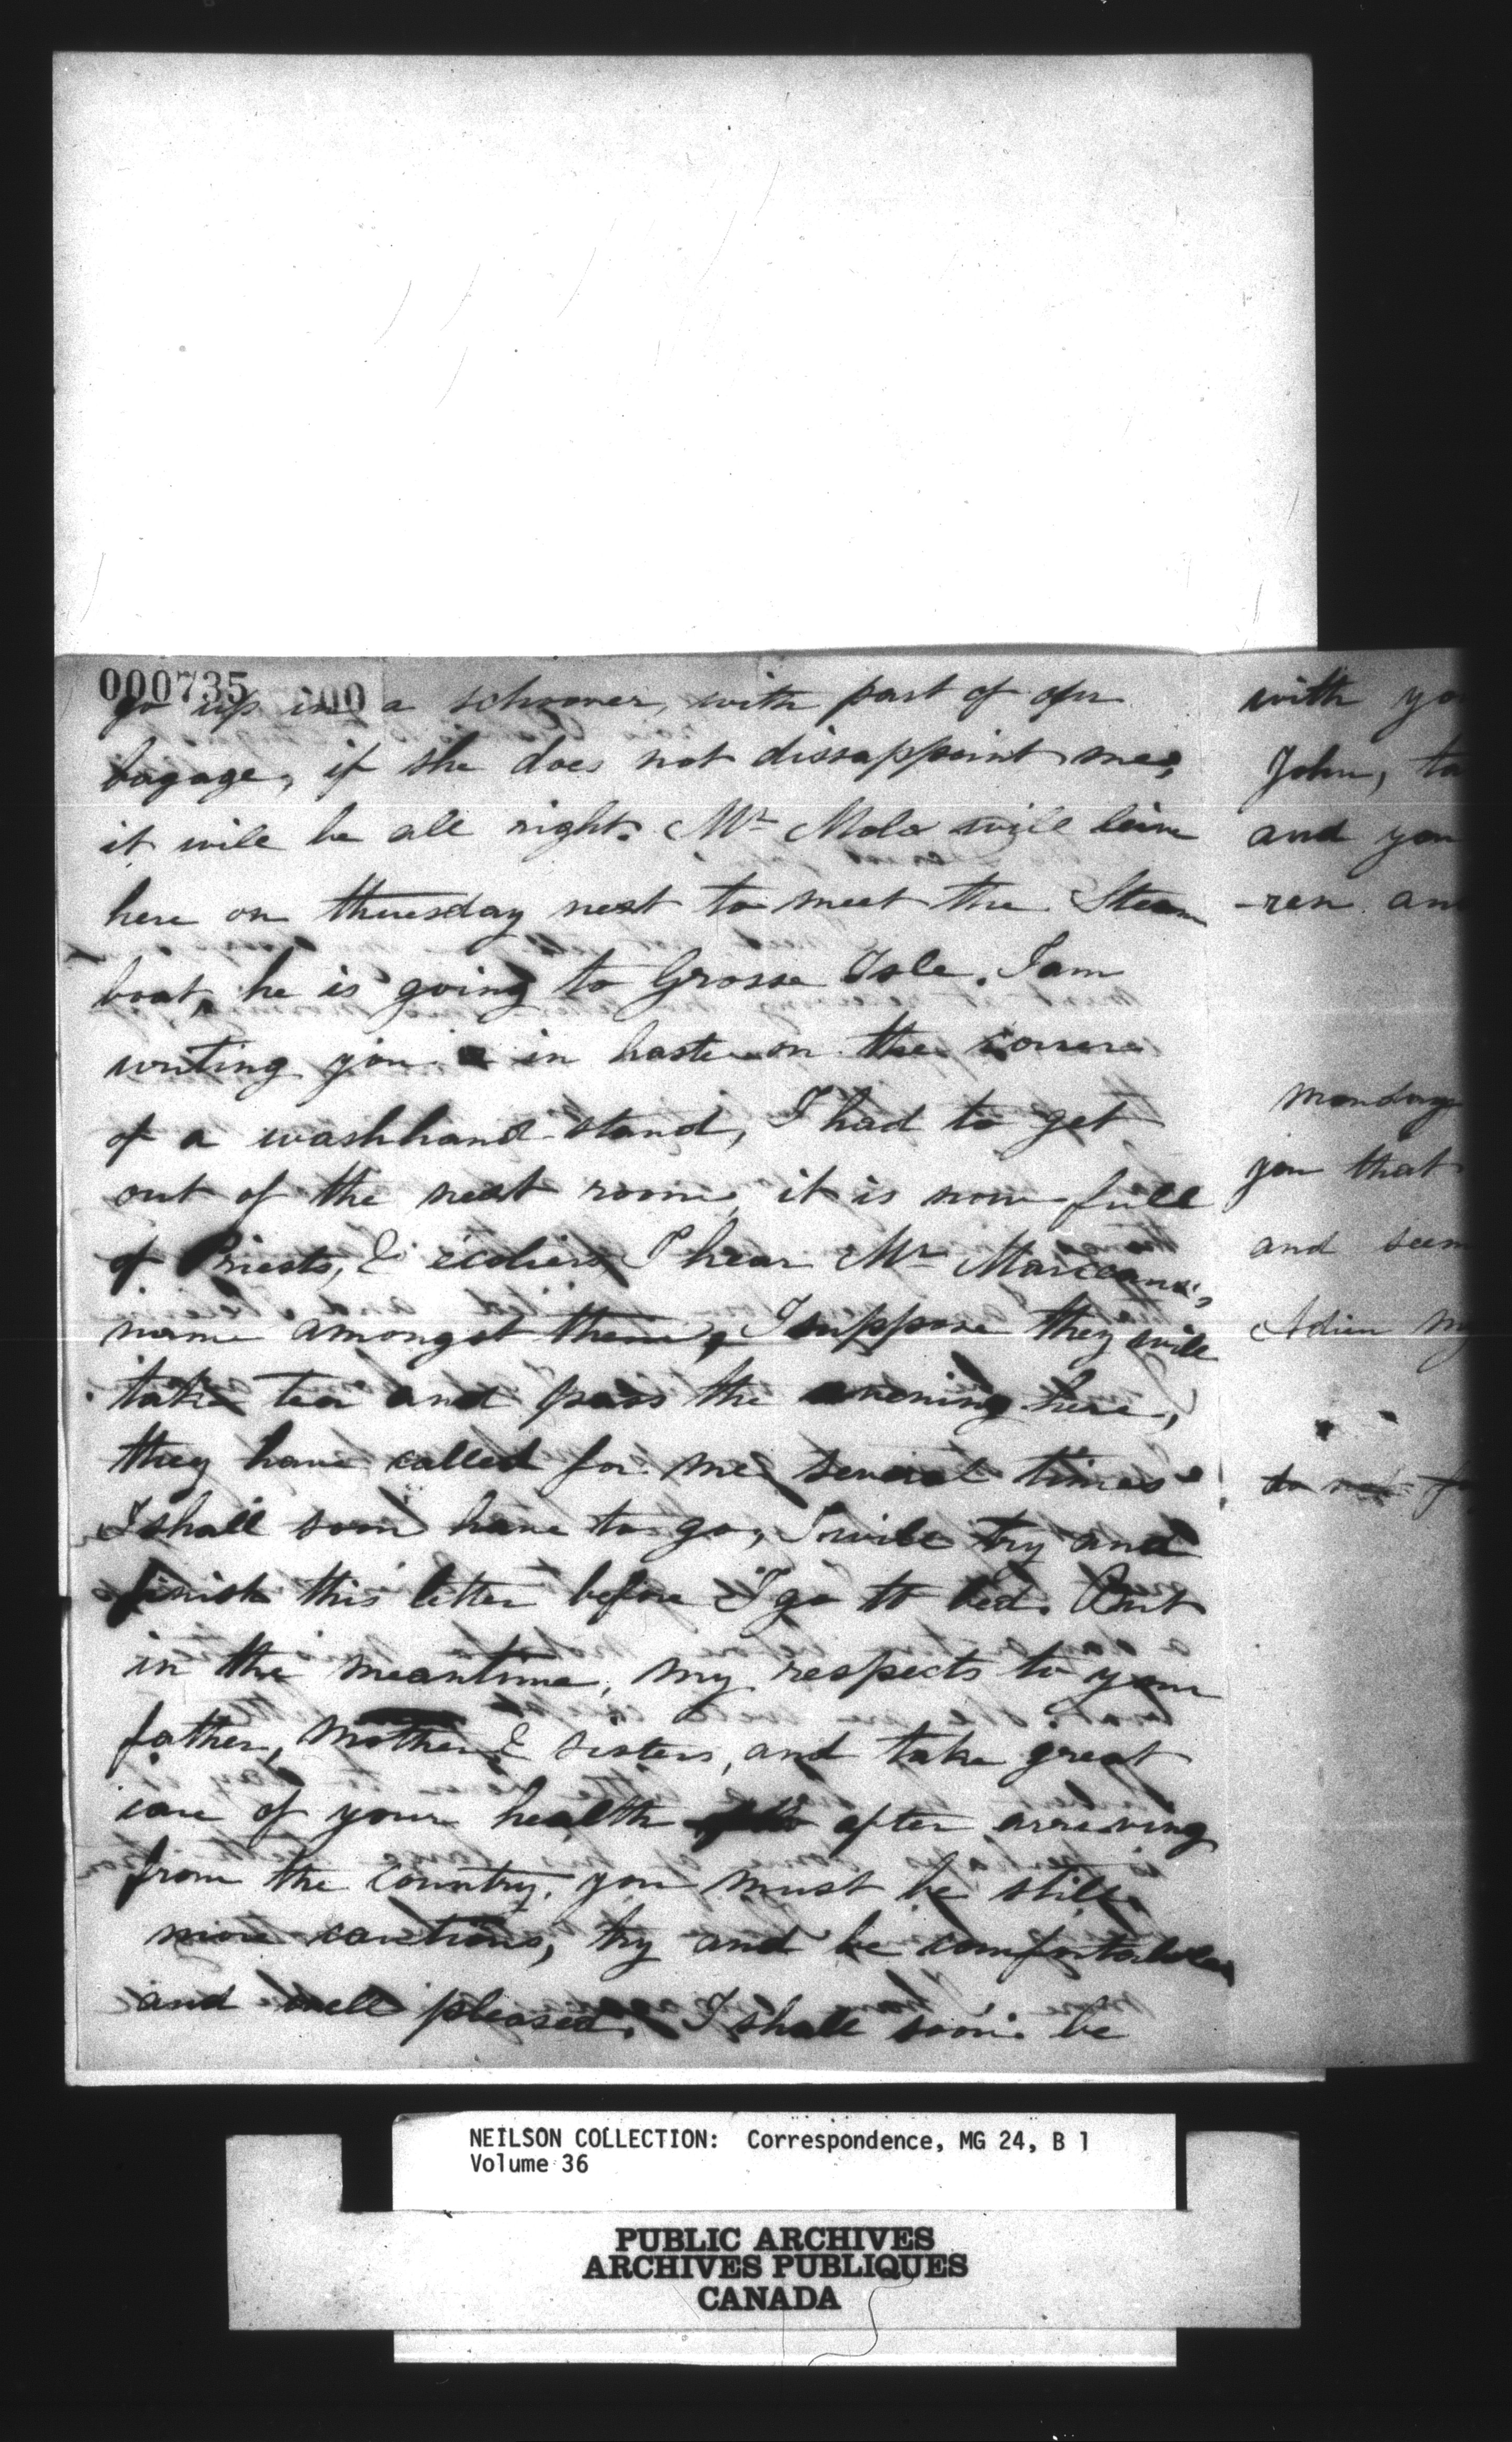 000735
go up in a schooner, with part of our
bagage, if she does not dissappoint me,
it will be all right. Mr Molo will leive
here on thuesday next to meet the Steam
boat, he is going to Grosse Isle. I am
writing you in haste on the cornere
of a washhand stand, I had to get
out of the next room, it is now full
of Priests, & écoliers I hear Mr
name amongst them, I suppose they will
take tea and pass the evening here,
they have called for me several times
I shall soon have to go, I will try and
finish this letter before I go to bed. But
in the meantime, my respects to your
father, mother & sisters, and take great
care of your health after arreiving
from the Country, you must be still
more cautious, try and be comfortable
and well pleased. I shall soon be
with yo
John, ta
and you
-ren an
monday
you that
and seem
Adieu my
NEILSON COLLECTION: Correspondence, MG 24, B 1
Volume 36
PUBLIC ARCHIVES
ARCHIVES PUBLIQUES
CANADA